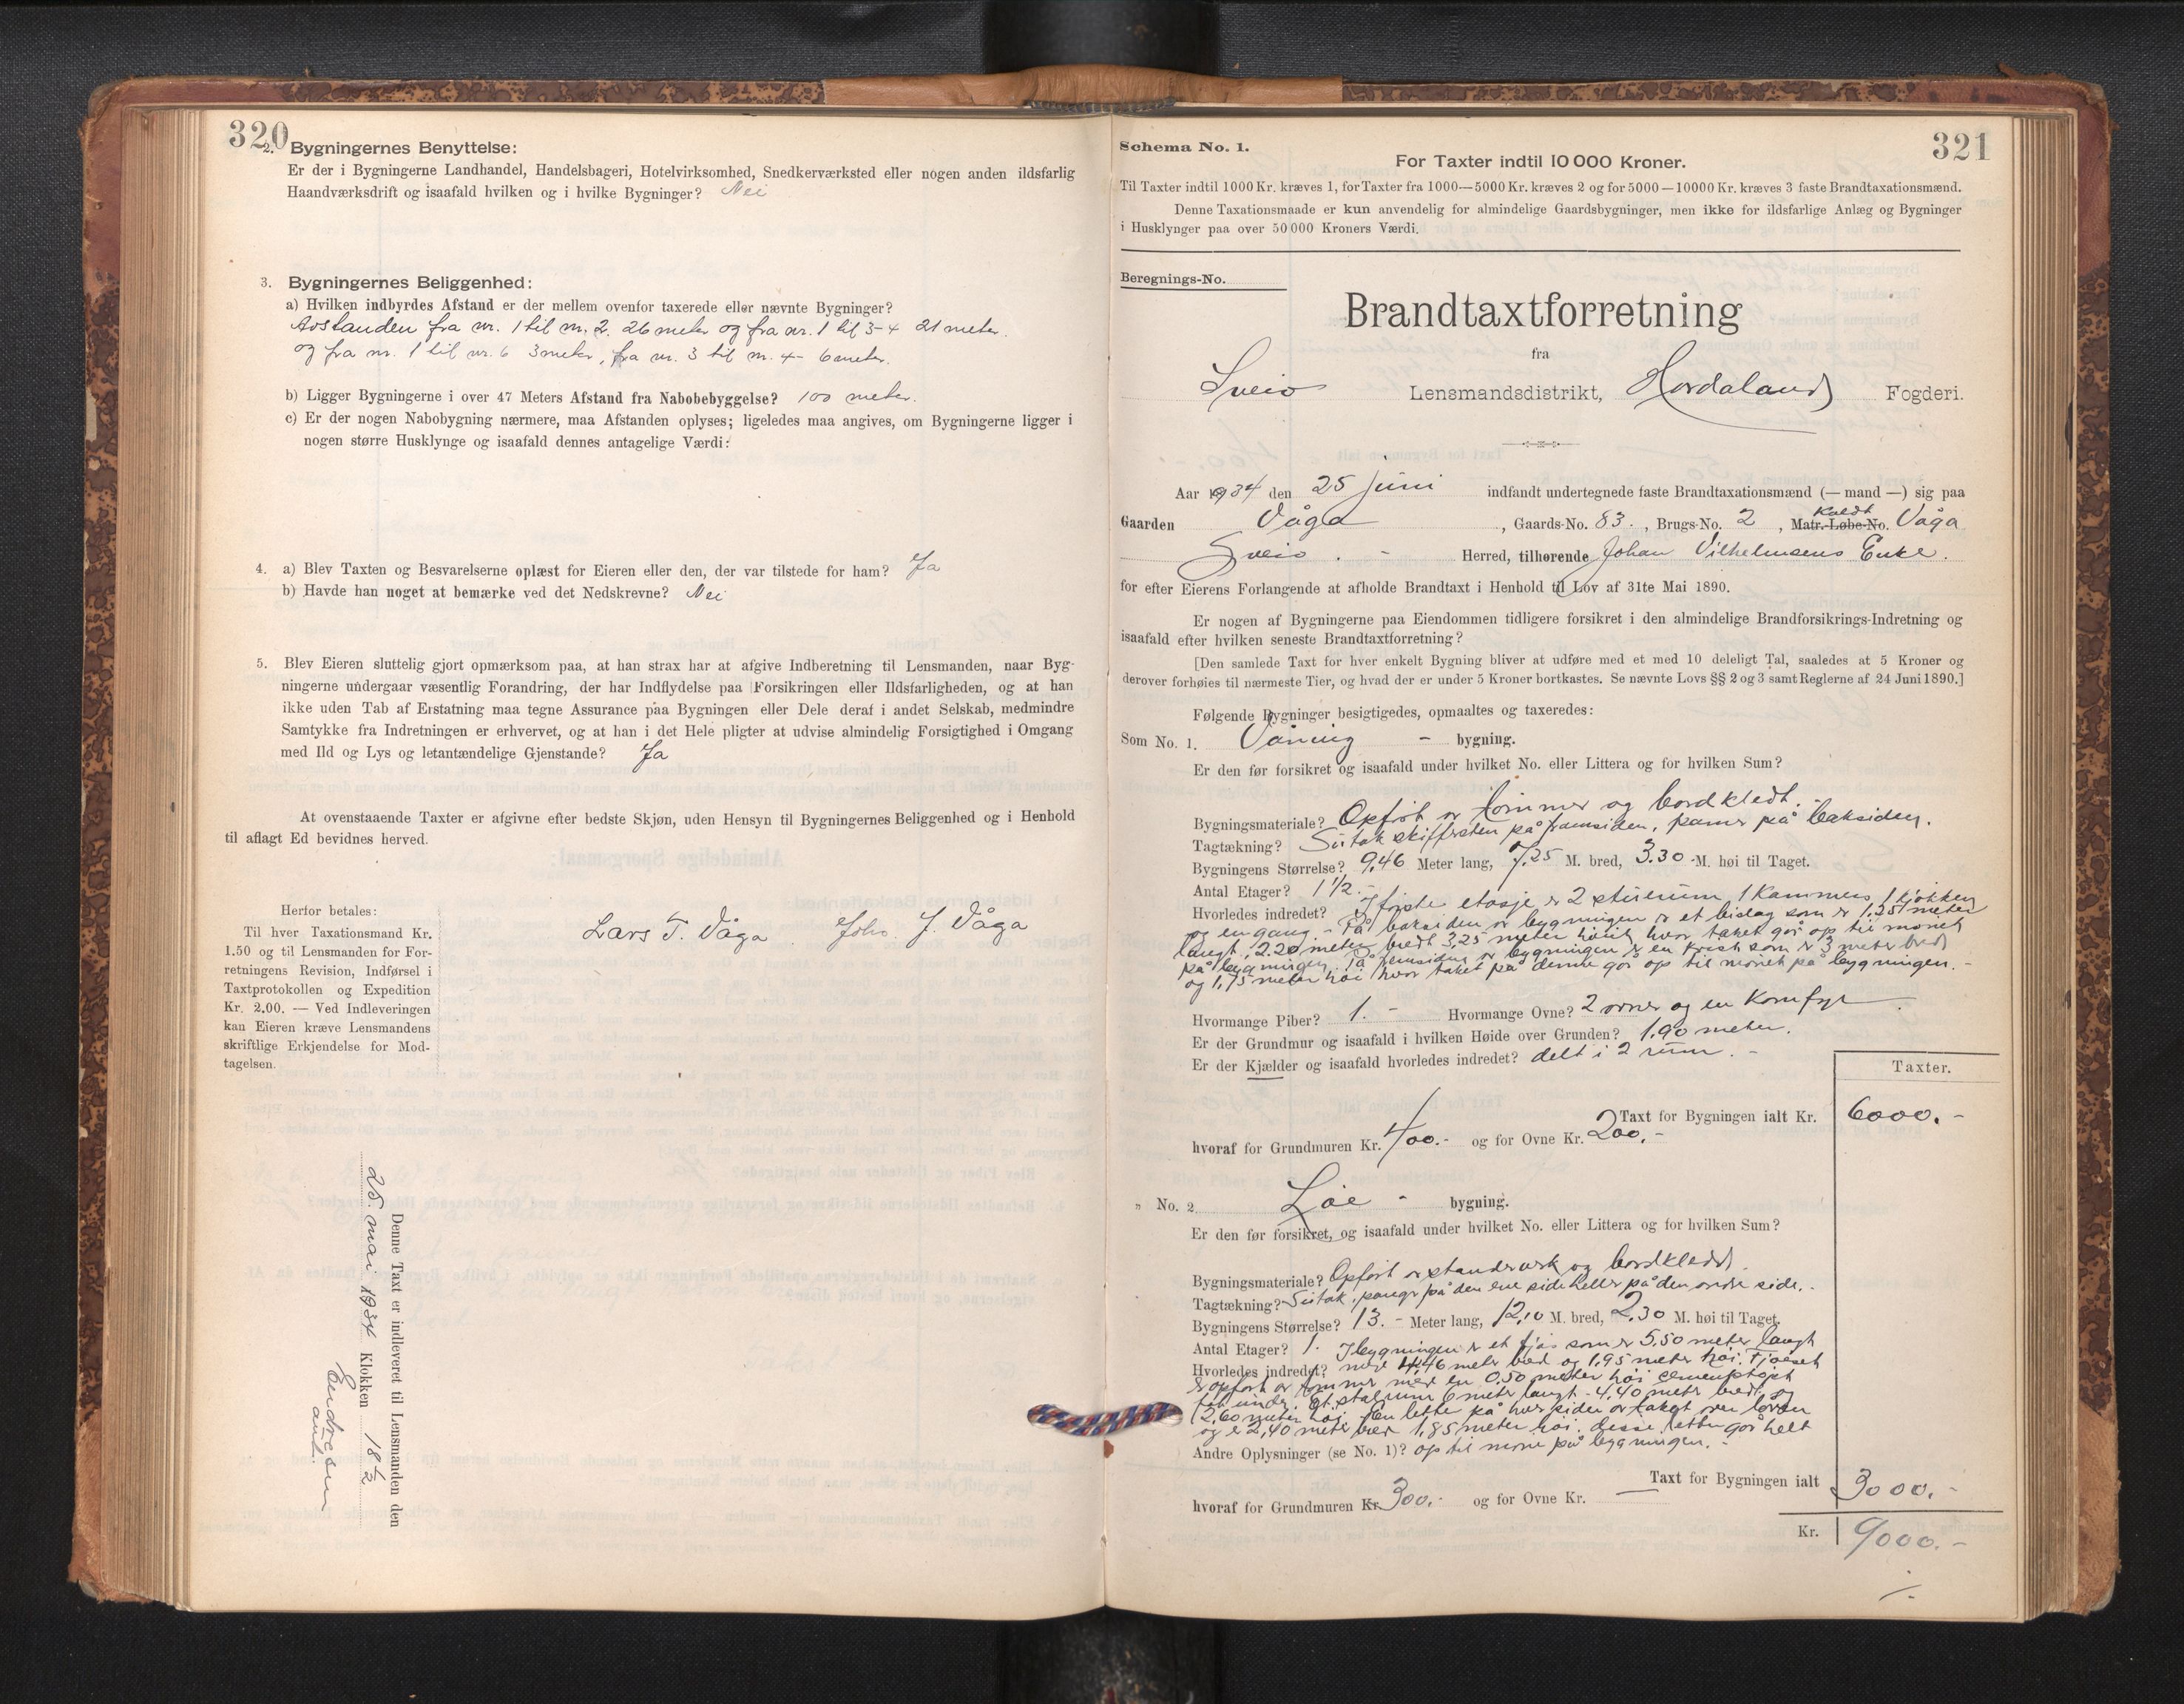 320
2. Bygningernes Benyttelse:
Er der i Bygningerne Landhandel, Handelsbageri, Hotelvirksomhed, Snedkerværksted eller nogen anden ildsfarlig
Haandværksdrift og isaafald hvilken og i hvilke Bygninger? Nei
3. Bygningernes Beliggenhed:
a) Hvilken indbyrdes Afstand er der mellem ovenfor taxerede eller nævnte Bygninger?
Avstanden fra nr. 1 til nr. 2. 26 meter og fra nr. 1 til 3-4 21 meter.
og fra nr. 1 til nr. 6 3 meter, fra nr. 3 til nr. 4- 6 meter.
b) Ligger Bygningerne i over 47 Meters Afstand fra Nabobebyggelse? 100 meter.
c) Er der nogen Nabobygning nærmere, maa Afstanden oplyses; ligeledes maa angives, om Bygningerne ligger i
nogen større Husklynge og isaafald dennes antagelige Værdi:
4. a) Blev Taxten og Besvarelserne oplæst for Eieren eller den, der var tilstede for ham? Ja
b) Havde han noget at bemærke ved det Nedskrevne? Nei
5. Blev Eieren sluttelig gjort opmærksom paa, at han strax har at afgive Indberetning til Lensmanden, naar Byg-
ningerne undergaar væsentlig Forandring, der har Indflydelse paa Forsikringen eller Ildsfarligheden, og at han
ikke uden Tab af Erstatning maa tegne Assurance paa Bygningen eller Dele deraf i andet Selskab, medmindre
Samtykke fra Indretningen er erhvervet, og at han i det Hele pligter at udvise almindelig Forsigtighed i Omgang
med Ild og Lys og letantændelige Gjenstande? Ja
At ovenstaaende Taxter er afgivne efter bedste Skjøn, uden Hensyn til Bygningernes Beliggenhed og i Henhold
til aflagt Ed bevidnes herved.
Lars T. Våga. Johs. J. Våga
Herfor betales:
Til hver Taxationsmand Kr.
1.50 og til Lensmanden for For-
retningens Revision, Indførsel i
Taxtprotokollen og Expedition
Kr. 2.00. — Ved Indleveringen
kan Eieren kræve Lensmandens
skriftlige Erkjendelse for Mod-
tagelsen.
Denne Taxt er indleveret til Lensmanden den
25. mai 1934 Klokken 18 1/2
Endresen
Schema No. 1.
321
For Taxter indtil 10 000 Kroner.
Til Taxter indtil 1000 Kr. kræves 1, for Taxter fra 1000—5000 Kr. kræves 2 og for 5000—10000 Kr. kræves 3 faste Brandtaxationsmænd.
Denne Taxationsmaade er kun anvendelig for almindelige Gaardsbygninger, men ikke for ildsfarlige Anlæg og Bygninger
i Husklynger paa over 50 000 Kroners Værdi.
Beregnings-No.
Brandtaxtforretning
fra
Sveio Lensmandsdistrikt, Hordaland Fogderi.
Aar 1934 den 25 juni indfandt undertegnede faste Brandtaxationsmænd (— mand —) sig paa
Gaarden Våga, Gaards-No. 83., Brugs-No. 2, Matr.-Løbe-No. Kaldt Våga
Sveio. - Herred, tilhørende Johan Vilhelmsens Enke.
for efter Eierens Forlangende at afholde Brandtaxt i Henhold til Lov af 31te Mai 1890.
Er nogen af Bygningerne paa Eiendommen tidligere forsikret i den almindelige Brandforsikrings-Indretning og
isaafald efter hvilken seneste Brandtaxtforretning?
[Den samlede Taxt for hver enkelt Bygning bliver at udføre med et med 10 deleligt Tal, saaledes at 5 Kroner og
derover forhøies til nærmeste Tier, og hvad der er under 5 Kroner bortkastes. Se nævnte Lovs §§ 2 og 3 samt Reglerne af 24 Juni 1890.]
Følgende Bygninger besigtigedes, opmaaltes og taxeredes:
Som No. 1. Våning - bygning.
Er den før forsikret og isaafald under hvilket No. eller Littera og for hvilken Sum?
Bygningsmateriale? Opført av tømmer og bordkledt.
Tagtækning? Sutak skiffersten på framsiden, panner på baksiden.
Bygningens Størrelse? 9,46 Meter lang, 7,25 M. bred, 3.30 M. høi til Taget.
Antal Etager? 1 1/2.
Hvorledes indredet? I første etasje er 2 stuerum 1 kammers 1 kjøkken
og en gang. - På baksiden av bygningen er et bislag som er 1,25 meter
langt, 2.20 meter bredt 3,25 meter høit hvor taket går op til mønet
på bygningen. På framsiden av bygningen er en kvist som er 3 meter bred
og 1,75 meter høi hvor taket på denne går op til mønet på bygningen. -
Hvormange Piber? 1. - Hvormange Ovne? 2 ovner og en komfyr
Er der Grundmur og isaafald i hvilken Høide over Grunden? 1,90 meter.
Er der Kjælder og isaafald hvorledes indredet? delt i 2 rum. -
Taxter.
Taxt for Bygningen ialt Kr. 6000.-
hvoraf for Grundmuren Kr. 400.- og for Ovne Kr. 200.-
„ No. 2 Løe - bygning.
Er den før forsikret, og isaafald under hvilket No. eller Littera og for hvilken Sum?
Bygningsmateriale? Opført av standverk og bordkledd.
Tagtækning? Sutak, panner på den ene side heller på den andre side.
Bygningens Størrelse? 13. - Meter lang, 12,10 M. bred, 2,30 M. høi til Taget.
Antal Etager? 1. I bygningen er et fjøs som er 5,50 meter langt
Hvorledes indredet? med 4,46 meter bred og 1,95 meter høi. Fjøset
er opført av tømmer med en 0,50 meter høi cementstøpt
fot under. Et stalrum 6 meter langt - 4,40 meter bredt og
2,60 meter høi. En lette på hver siden av taket over løven
og er 2,40 meter bred 1,85 meter høi. disse letter går helt
Andre Oplysninger (se No. 1)? op til møne på bygningen. -
Taxt for Bygningen ialt 3000.-
hvoraf for Grundmuren Kr. 300.- og for Ovne Kr. —
Kr. 9000.-